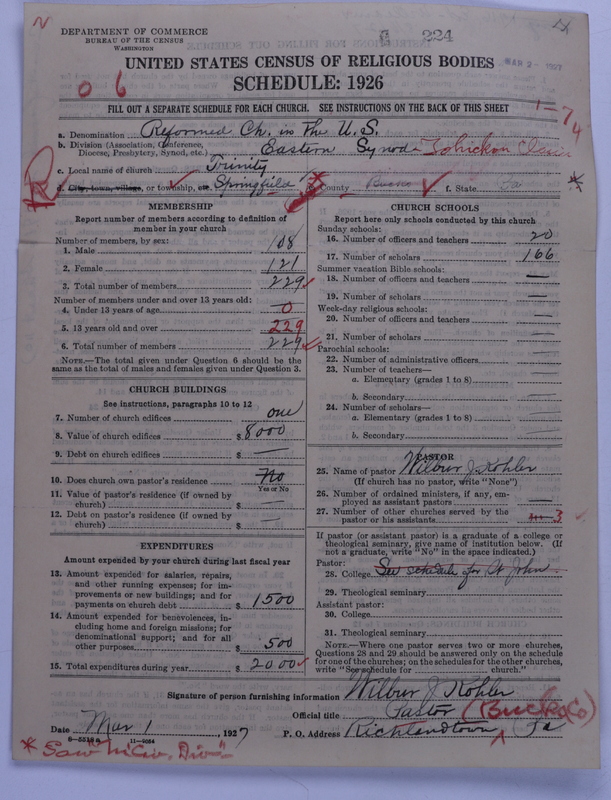 DEPARTMENT OF COMMERCE
BUREAU OF THE CENSUS
WASHINGTON
224
MAR 2- 1927
UNITED STATES CENSUS OF RELIGIOUS BODIES
SCHEDULE: 1926
0 6
1-74
FILL OUT A SEPARATE SCHEDULE FOR EACH CHURCH. SEE INSTRUCTIONS ON THE BACK OF THIS SHEET
a. Denomination Reformed Ch. in The U.S.
b. Division (Association, Conference, Diocese, Presbytery, Synod, etc.) Eastern Synod - Tohickon Classis
c. Local name of church Trinity
d. City, town, village, or township, etc. Springfield e. County Bucks f. State Pa *
MEMBERSHIP
Report number of members according to definition of
member in your church
Number of members, by sex:
1. Male 108
2. Female 121
3. Total number of members 229
Number of members under and over 13 years old:
4. Under 13 years of age 0
5. 13 years old and over 229
6. Total number of members 229
NOTE.—The total given under Question 6 should be
same as the total of males and females given under Question 3.
CHURCH BUILDINGS
See instructions, paragraphs 10 to 12
7. Number of church edifices one
8. Value of church edifices $8000
9. Debt on church edifices $ —
10. Does church own pastor's residence No
Yes or No
11. Value of pastor's residence (if owned by
church) $ —
12. Debt on pastor's residence (if owned by
church) $ —
EXPENDITURES
Amount expended by your church during last fiscal year
13. Amount expended for salaries, repairs,
and other running expenses; for im-
provements or new buildings; and for
payments on church debt $ 1500
14. Amount expended for benevolences, in-
cluding home and foreign missions; for
denominational support; and for all
other purposes $ 500
15. Total expenditures during year $ 2000
CHURCH SCHOOLS
Report here only schools conducted by this church
Sunday schools:
16. Number of officers and teachers 20
17. Number of scholars 166
Summer vacation Bible schools:
18. Number of officers and teachers —
19. Number of scholars —
Week-day religious schools:
20. Number of officers and teachers —
21. Number of scholars —
Parochial schools:
22. Number of administrative officers —
23. Number of teachers—
a. Elementary (grades 1 to 8) —
b. Secondary —
24. Number of scholars—
a. Elementary (grades 1 to 8) —
b. Secondary —
PASTOR
25. Name of pastor Wilbur J. Kohler
(If church has no pastor, write "None")
26. Number of ordained ministers, if any, em-
ployed as assistant pastors —
27. Number of other churches served by the
pastor or his assistants 3
If pastor (or assistant pastor) is a graduate of a college or
theological seminary, give name of institution below. (If
not a graduate, write "No" in the space indicated.)
Pastor:
28. College See schedule for St John
29. Theological seminary
Assistant pastor:
30. College
31. Theological seminary
NOTE.—Where one pastor serves two or more churches,
Questions 28 and 29 should be answered only on the schedule
for one of the churches; on the schedules for the other churches,
write "See schedule for church."
Signature of person furnishing information Wilbur J. Kohler
Official title Pastor (Bucks Co)
Date Mar 1, 1927 P. O. Address Richlandtown Pa
11—9034